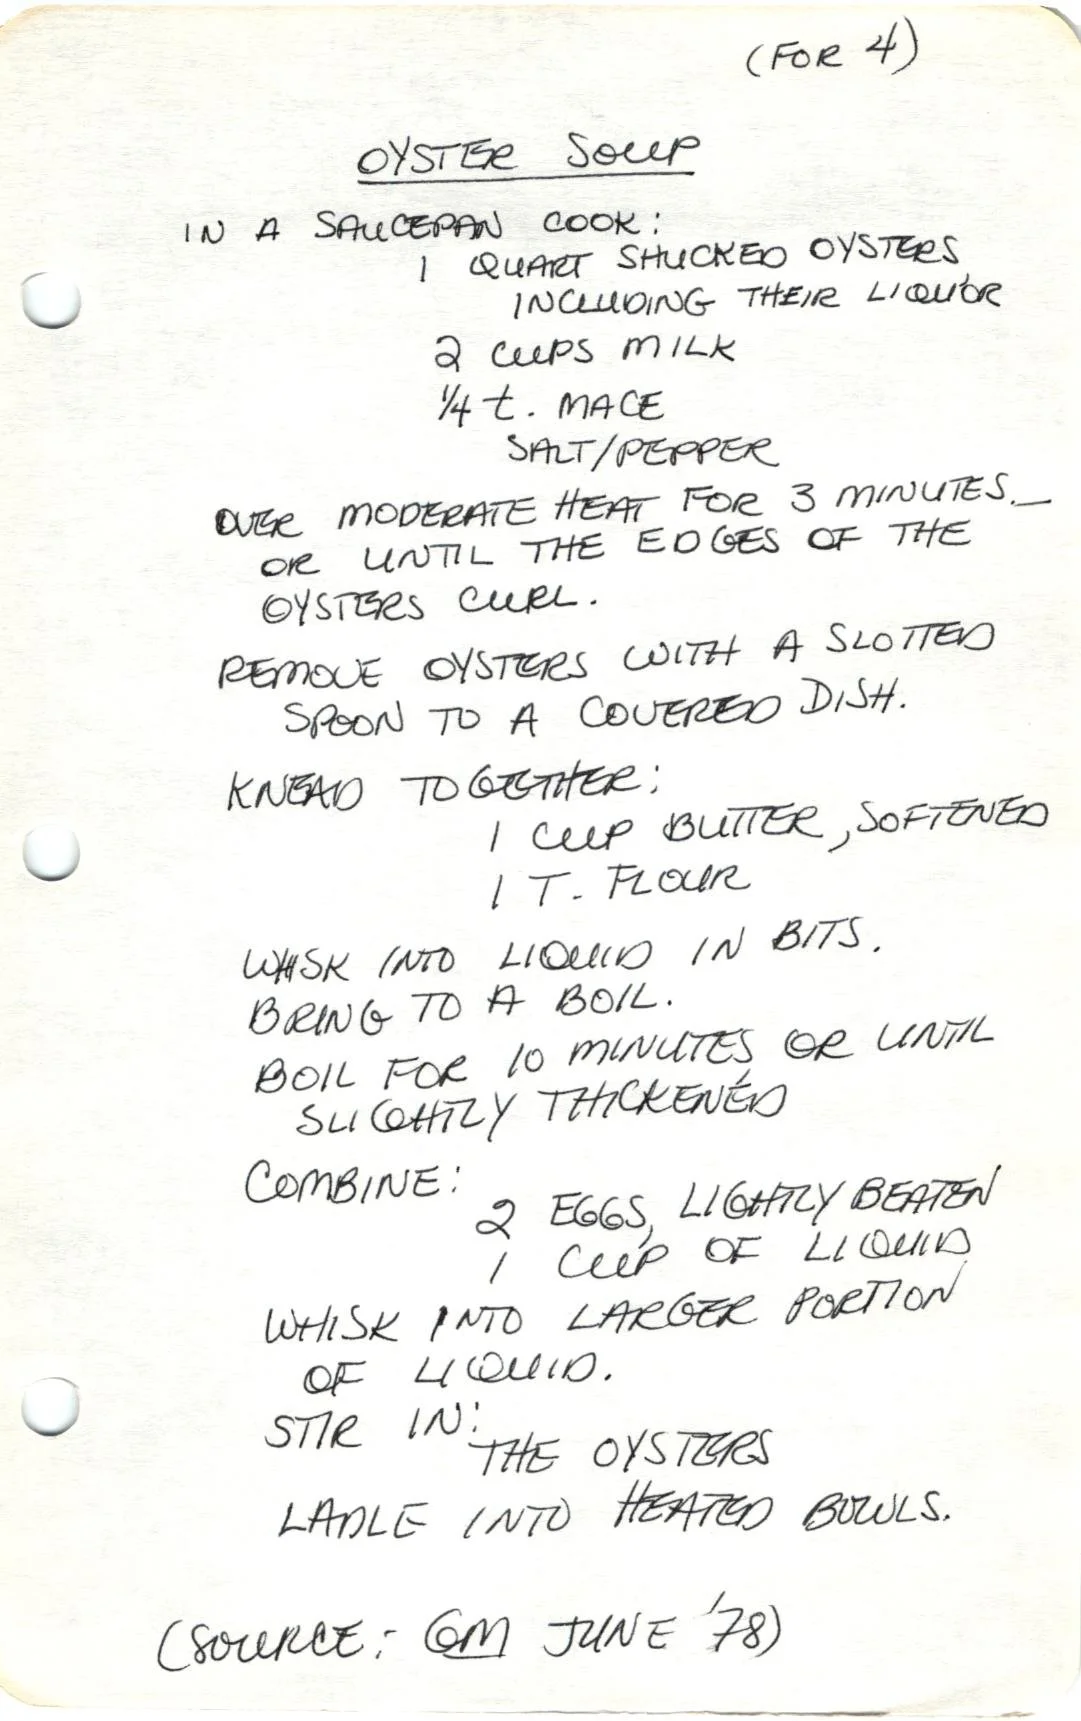 (FOR 4)
OYSTER SOUP
IN A SAUCEPAN COOK:
1 QUART SHUCKED OYSTERS
INCLUDING THEIR LIQUOR
2 CUPS MILK
1/4 t. MACE
SALT/PEPPER
OVER MODERATE HEAT FOR 3 MINUTES._
OR UNTIL THE EDGES OF THE
OYSTERS CURL.
REMOVE OYSTERS WITH A SLOTTED
SPOON TO A COVERED DISH.
KNEAD TOGETHER:
1 CUP BUTTER, SOFTENED
1 T. FLOUR
WHISK INTO LIQUID IN BITS.
BRING TO A BOIL.
BOIL FOR 10 MINUTES OR UNTIL
SLIGHTLY THICKENED
COMBINE:
2 EGGS, LIGHTLY BEATEN
1 CUP OF LIQUID
WHISK INTO LARGER PORTION
OF LIQUID.
STIR IN:
THE OYSTERS
LADLE INTO HEATED BOWLS.
(SOURCE: GM JUNE '78)